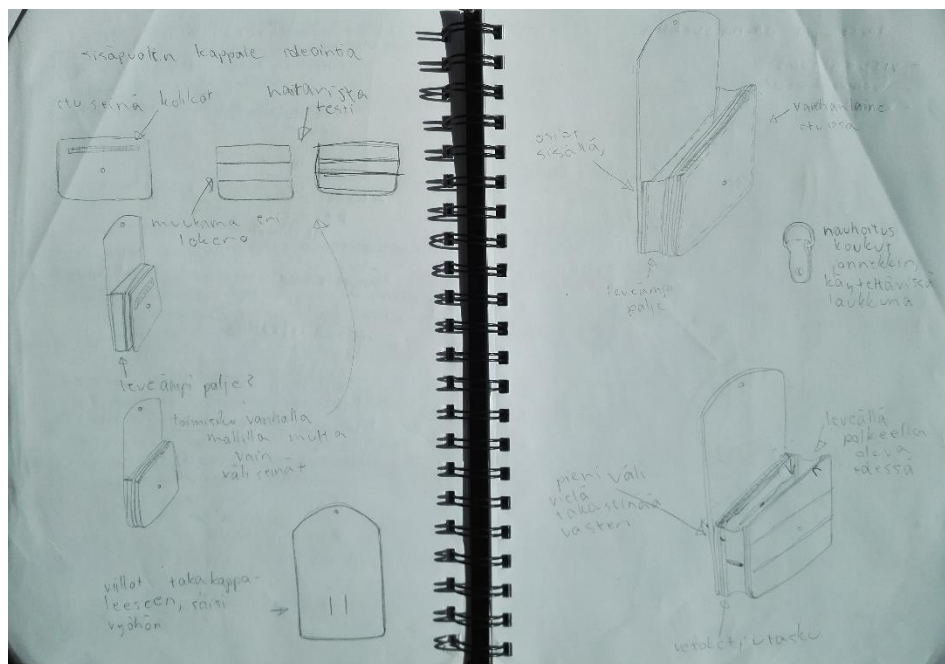 sisäpuolin kappale ideointia
etu seinä kolikot
testi
muutama eri
lokero
leveämpi palje?
toimisiko vanhalla
mallilla mutta
vain
väliseinät
viillot takakappa-
leeseen, säisi
vyöhön
osiot
sisällä,
vanhanlainen
etuosa
leveämpi
palje
nauhoitus
koukut
jonnekkin,
käytettävissä
laukkuna
leveällä
palkeella
oleva
edessä
pieni väli
vielä
takaseinää
vasten
vetoketjutasku